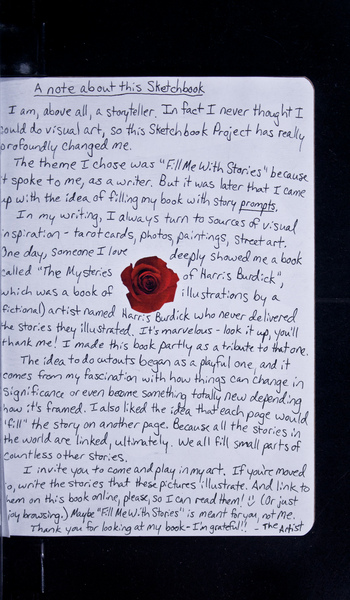 A note about this Sketchbook
I am, above all, a storyteller. In fact I never thought I
could do visual art, so this Sketchbook Project has really
profoundly changed me.
The theme I chose was "Fill Me With Stories" because
it spoke to me, as a writer. But it was later that I came
up with the idea of filling my book with story prompts.
In my writing, I always turn to sources of visual
inspiration - tarot cards, photos, paintings, street art.
One day, someone I love deeply showed me a book
called "The Mysteries of Harris Burdick",
which was a book of illustrations by a
fictional) artist named Harris Burdick who never delivered
the stories they illustrated. It's marvelous - look it up, you'll
thank me! I made this book partly as a tribute to that one.
The idea to do cutouts began as a playful one, and it
comes from my fascination with how things can change in
significance or even become something totally new depending
how it's framed. I also liked the idea that each page would
"fill" the story on another page. Because all the stories in
the world are linked, ultimately. We all fill small parts of
countless other stories.
I invite you to come and play in my art. If you're moved
to, write the stories that these pictures illustrate. And link to
them on this book online, please, so I can read them! (Or just
joy browsing.) Maybe "Fill Me With Stories" is meant for you, not me.
Thank you for looking at my book - I'm grateful!! - The Artist